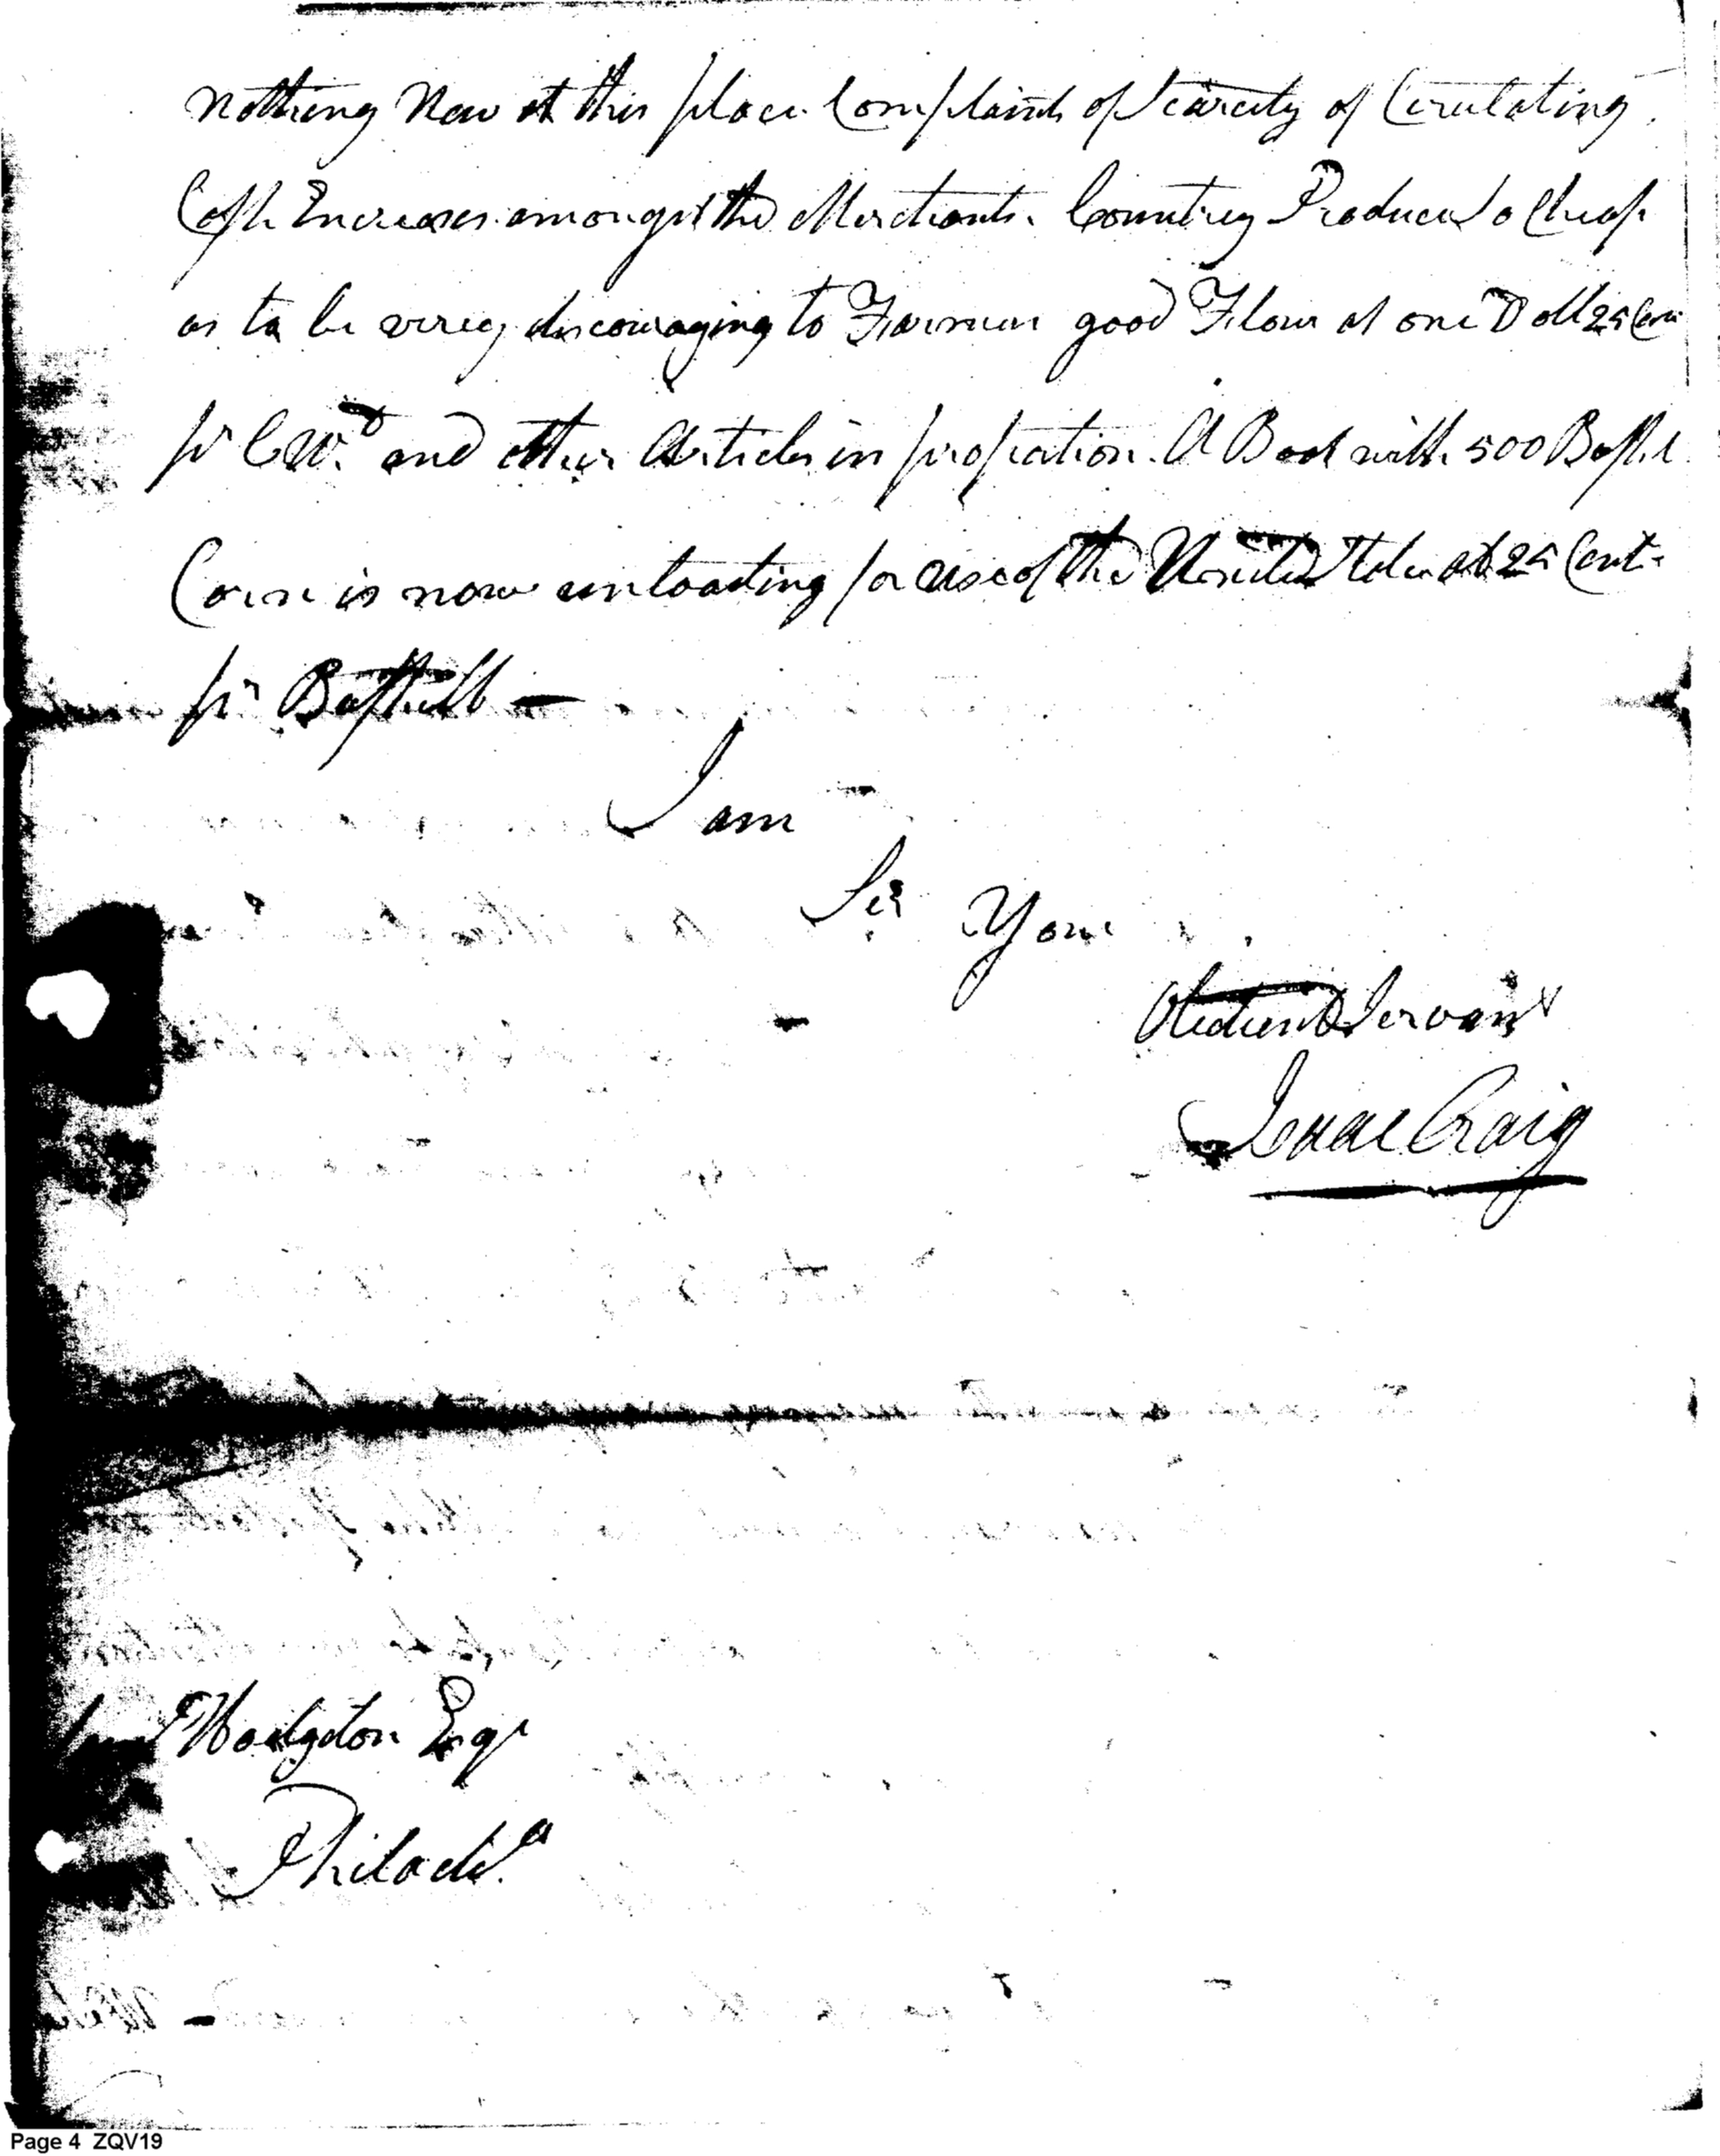 nothing New at this place. Complaints of Scarcity of Cirulating
Cash Encreases amongst the Merchants. Country Produce So Cheap
as to be verey discouraging to Farmers good Flour at one Doll 25 Cen
pr CWt and other Articles in proportion. A Boat with 500 Bushl
Corn is now unloading for use of the United States at 25 Cents
pr Bushell —
I am
Sir Your
Obedient Servant
Isaac Craig
Hodgdon Esqr
Philada
Page 4 ZQV19